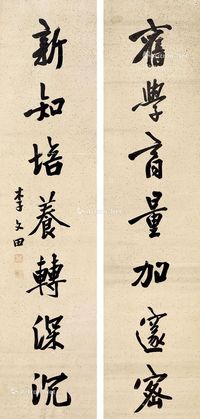 舊學商量加邃密
新知培養轉深沉
李文田